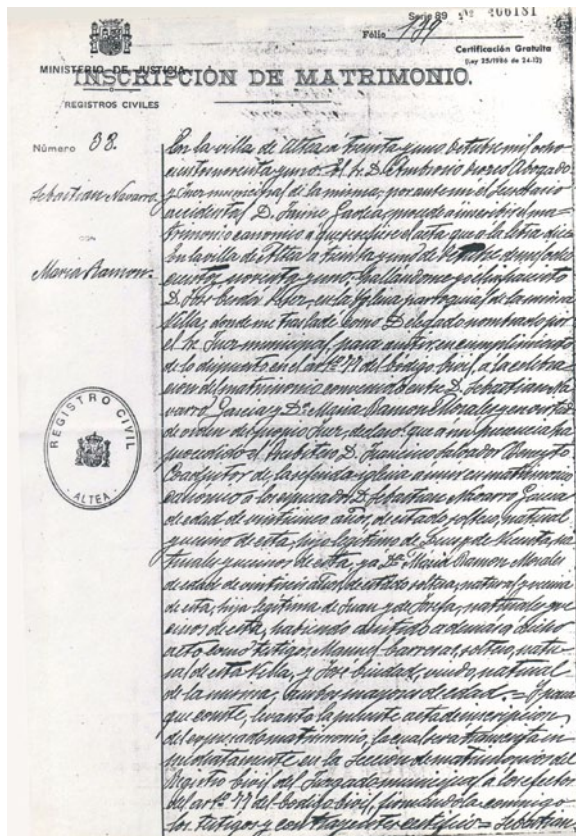 Serie 89 Nº 206181
Fólio 139
Certificación Gratuita
(Ley 25/1986 de 24-12)
MINISTERIO DE JUSTICIA
INSCRIPCIÓN DE MATRIMONIO.
REGISTROS CIVILES
Número 38.
Sebastian Navarro
con
Maria Ramon
REGISTRO CIVIL
ALTEA
En la villa de Altea á treinta y uno Octubre mil ocho
cientos noventa y uno. El Sr. D. Ambrosio Abogado
y Juez municipal de la misma, por ante mi el Secretario
accidental D. Jaime Garcia, procede á inscribir el ma-
trimonio canonico á que se refiere el acta que á la letra dice
En la villa de Altea á treinta y uno de Octubre de mil ocho
cientos noventa y uno, hallandome yo el infrascrito
D. José en la Iglesia parroquial de la misma
Villa, donde me trasladé como Delegado nombrado por
el Sr. Juez municipal, para asistir, en cumplimiento
de lo dispuesto en el artº 77 del Código civil, á la celebra
cion del matrimonio convenido entre D. Sebastian Na-
varro Garcia y Dª Maria Ramon Morales y en virtud
de orden del propio Juez, declaro: que á mi presencia ha
procedido el Presbitero D. Francisco Salvador
Coadjutor de la referida iglesia á unir en matrimonio
canonico á los expresados D. Sebastian Navarro Garcia
de edad de veinticinco años, de estado soltero, natural
y vecino de esta, hijo legitimo de y de Vicenta, na-
turales y vecinos de esta, y á Dª Maria Ramon Morales
de edad de veinticinco años de estado soltera, natural y vecina
de esta, hija legitima de Juan y de Josefa, naturales y ve
cinos de esta, habiendo asistido además á dicho
acto como testigos, Manuel Barreras, soltero, natu-
ral de esta Villa, y José Ciudad, viudo, natural
de la misma, ambos mayores de edad. = Y para
que conste, levanto la presente acta de inscripcion
del expresado matrimonio, la cual sera transcrita in
mediatamente en la Seccion de matrimonios del
Registro civil del Juzgado municipal á los efectos
del artº 77 del Código civil, firmandola conmigo
los testigos y contrayentes certifico = Sebastian